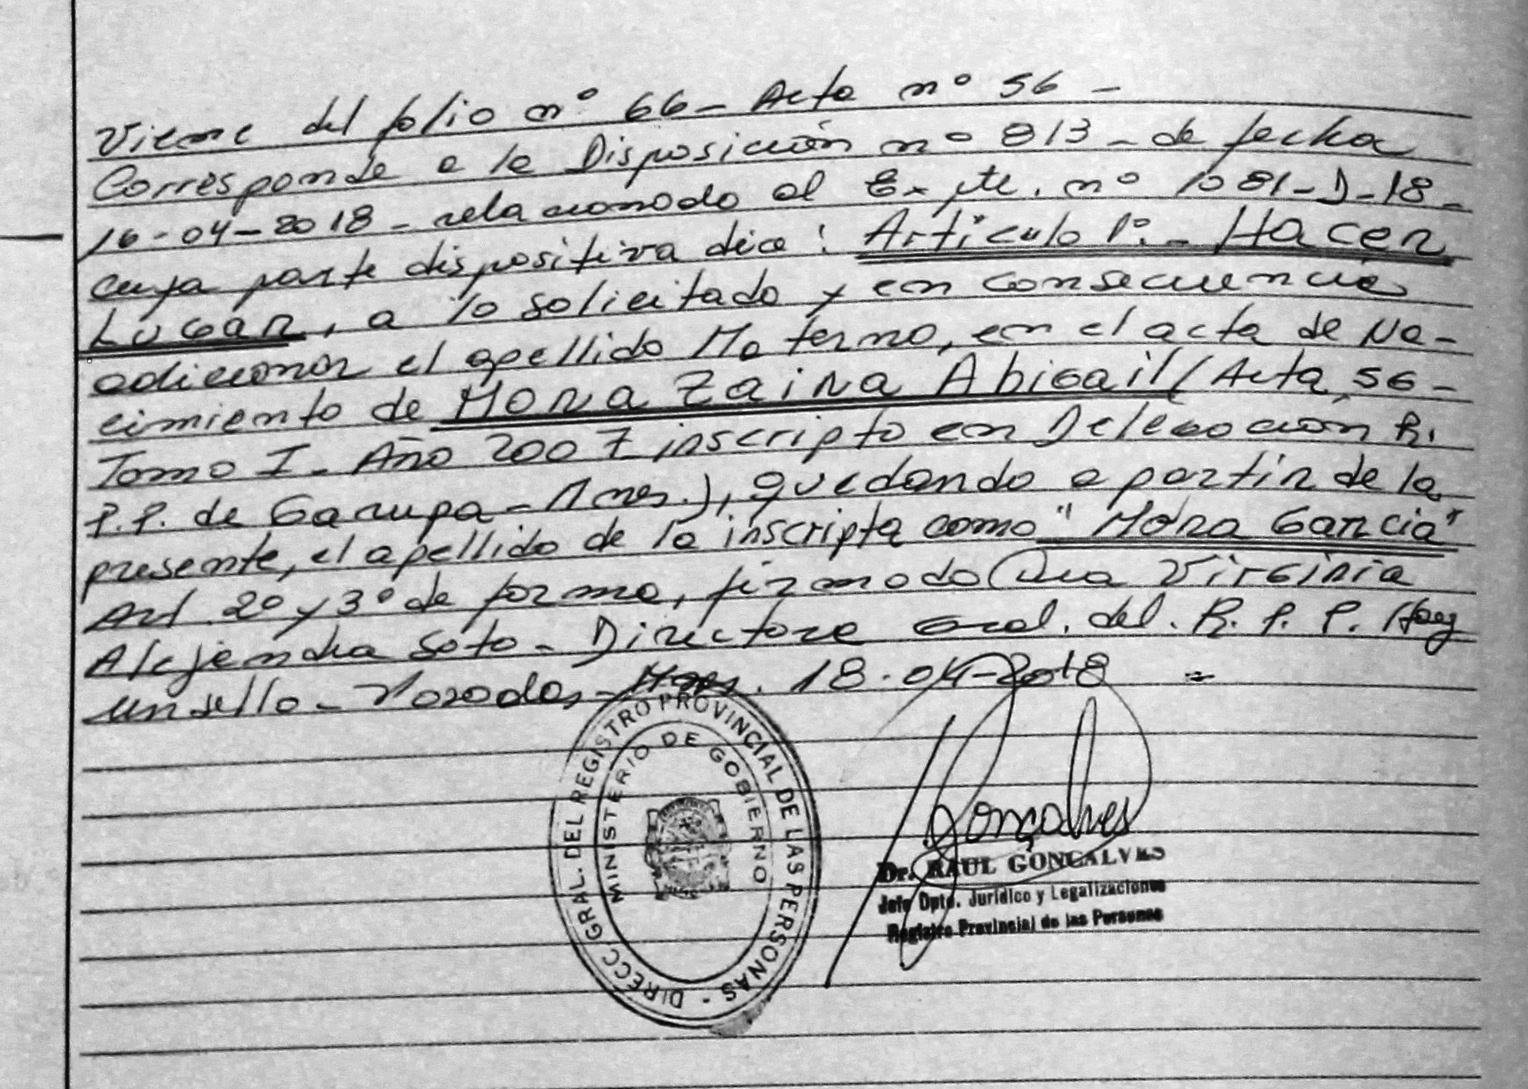 Viene del folio nº 66 - Acta nº 56 -
Corresponde a la Disposición nº 813 - de fecha
16-04-2018 - relacionado al Expte. nº 1081-D-18-
cuya parte dispositiva dice: Artículo 1º.- Hacer
Lugar, a lo solicitado y en consecuencia
adicionar el apellido Materno, en el acta de Na-
cimiento de Mora Zaira Abigail (Acta, 56 -
Tomo I - Año 2007 inscripto en Delegación R.
P.P. de Garupa - Mnes.), quedando a partir de la
presente, el apellido de la inscripta como "Mora Garcia"
Art. 2º y 3º de forma, firmado Dra Virginia
Alejandra Soto - Directora Gral. del. R. P. P. Hay
un sello - Posadas - Mnes. 18-04-2018 =
DIRECC GRAL. DEL REGISTRO PROVINCIAL DE LAS PERSONAS -
MINISTERIO DE GOBIERNO
Gonçalves
Dr. RAUL GONÇALVES
Jefe Dpto. Jurídico y Legalizaciones
Registro Provincial de las Personas